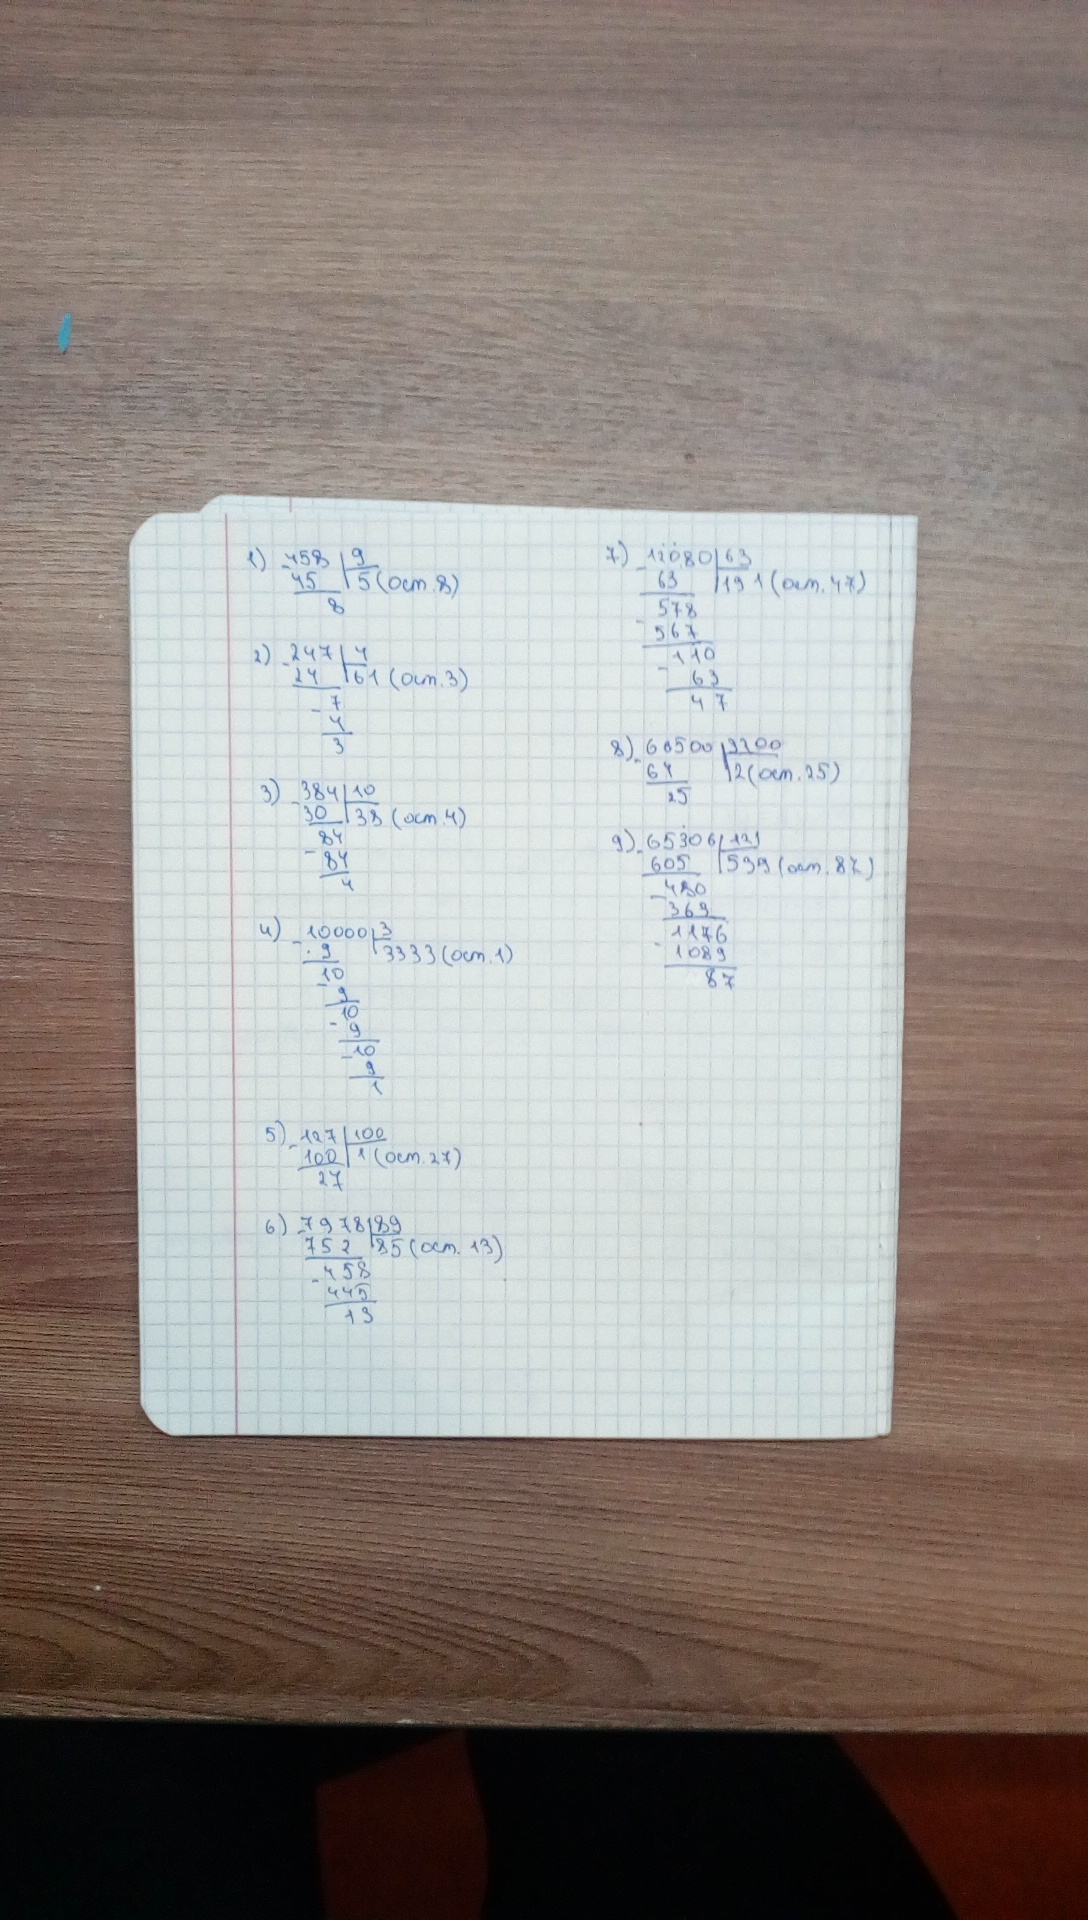 1) 458 | 9
- 45 | 5 (ост. 8)
8
2) 247 | 4
- 24 | 61 (ост. 3)
- 7
4
3
3) 384 | 10
- 30 | 38 (ост. 4)
- 84
84
4
4) 10000 | 3
- 9 | 3333 (ост. 1)
- 10
9
- 10
9
- 10
9
1
5) 127 | 100
- 100 | 1 (ост. 27)
27
6) 7978 | 89
- 752 | 85 (ост. 13)
- 458
445
13
7) 12080 | 63
- 63 | 191 (ост. 47)
- 578
567
- 110
63
47
8) 66500 | 3200
- 64 | 2 (ост. 25)
25
9) 65306 | 121
- 605 | 539 (ост. 87)
- 480
363
- 1176
1089
87